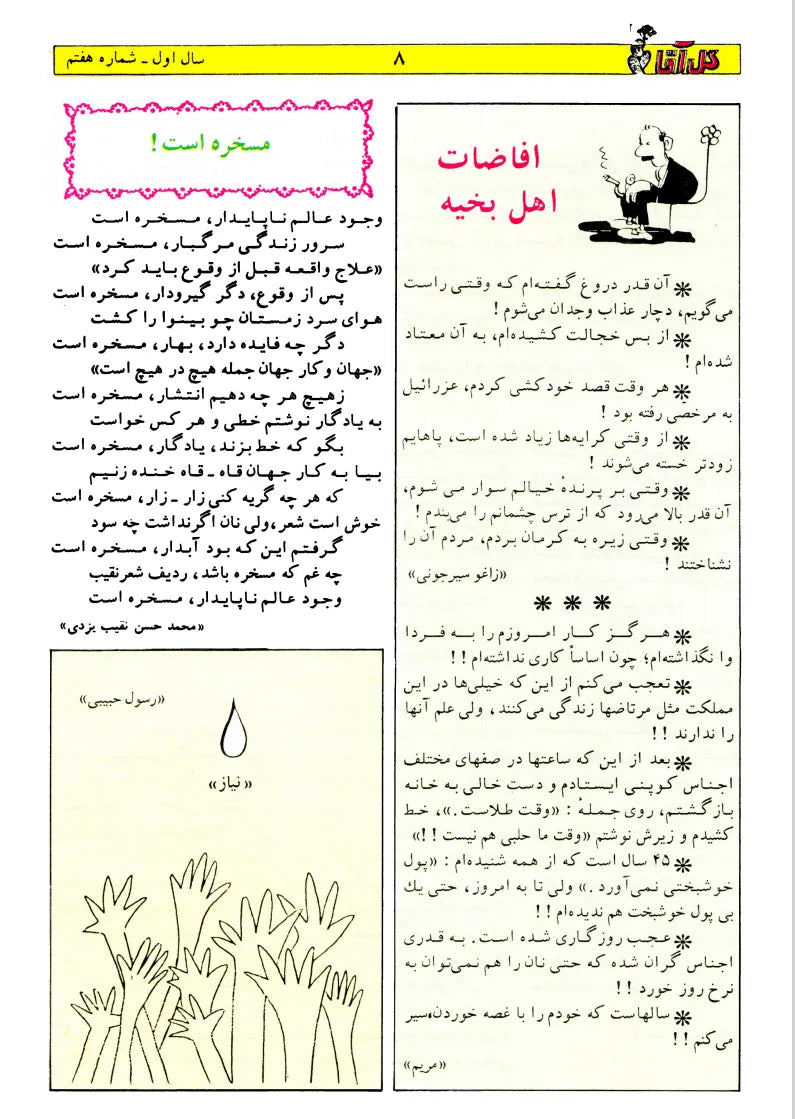 گل آقا
۸
سال اول ـ شماره هفتم
افاضات
اهل بخیه
❋ آن قدر دروغ گفته‌ام که وقتی راست
می‌گویم، دچار عذاب وجدان می‌شوم !
❋ از بس خجالت کشیده‌ام، به آن معتاد
شده‌ام !
❋ هر وقت قصد خودکشی کردم، عزرائیل
به مرخصی رفته بود !
❋ از وقتی کرایه‌ها زیاد شده است، پاهایم
زودتر خسته می‌شوند !
❋ وقتی بر پرندهٔ خیالم سوار می شوم،
آن قدر بالا می‌رود که از ترس چشمانم را می‌بندم !
❋ وقتی زیره به کرمان بردم، مردم آن را
نشناختند !
«زاغو سیرجونی»
❋ ❋ ❋
❋ هرگز کار امروزم را به فردا
وا نگذاشته‌ام؛ چون اساساً کاری نداشته‌ام !!
❋ تعجب می‌کنم از این که خیلی‌ها در این
مملکت مثل مرتاضها زندگی می‌کنند، ولی علم آنها
را ندارند !!
❋ بعد از این که ساعتها در صفهای مختلف
اجناس کوپنی ایستادم و دست خالی به خانه
بازگشتم، روی جملهٔ : «وقت طلاست.»، خط
کشیدم و زیرش نوشتم «وقت ما حلبی هم نیست !!»
❋ ۴۵ سال است که از همه شنیده‌ام : «پول
خوشبختی نمی‌آورد .» ولی تا به امروز، حتی یك
بی پول خوشبخت هم ندیده‌ام !!
❋ عجب روزگاری شده است. به قدری
اجناس گران شده که حتی نان را هم نمی‌توان به
نرخ روز خورد !!
❋ سالهاست که خودم را با غصه خوردن،سیر
می‌کنم !!
«مریم»
مسخره است !
وجود عالم ناپایدار، مسخره است
سرور زندگی مرگبار، مسخره است
«علاج واقعه قبل از وقوع باید کرد»
پس از وقوع، دگر گیرودار، مسخره است
هوای سرد زمستان چو بینوا را کشت
دگر چه فایده دارد، بهار، مسخره است
«جهان و کار جهان جمله هیچ در هیچ است»
زهیچ هر چه دهیم انتشار، مسخره است
به یادگار نوشتم خطی و هر کس خواست
بگو که خط بزند، یادگار، مسخره است
بیا به کار جهان قاه ـ قاه خنده زنیم
که هر چه گریه کنی زار ـ زار، مسخره است
خوش است شعر،ولی نان اگرنداشت چه سود
گرفتم این که بود آبدار، مسخره است
چه غم که مسخره باشد، ردیف شعرنقیب
وجود عالم ناپایدار، مسخره است
«محمد حسن نقیب یزدی»
«رسول حبیبی»
«نیاز»